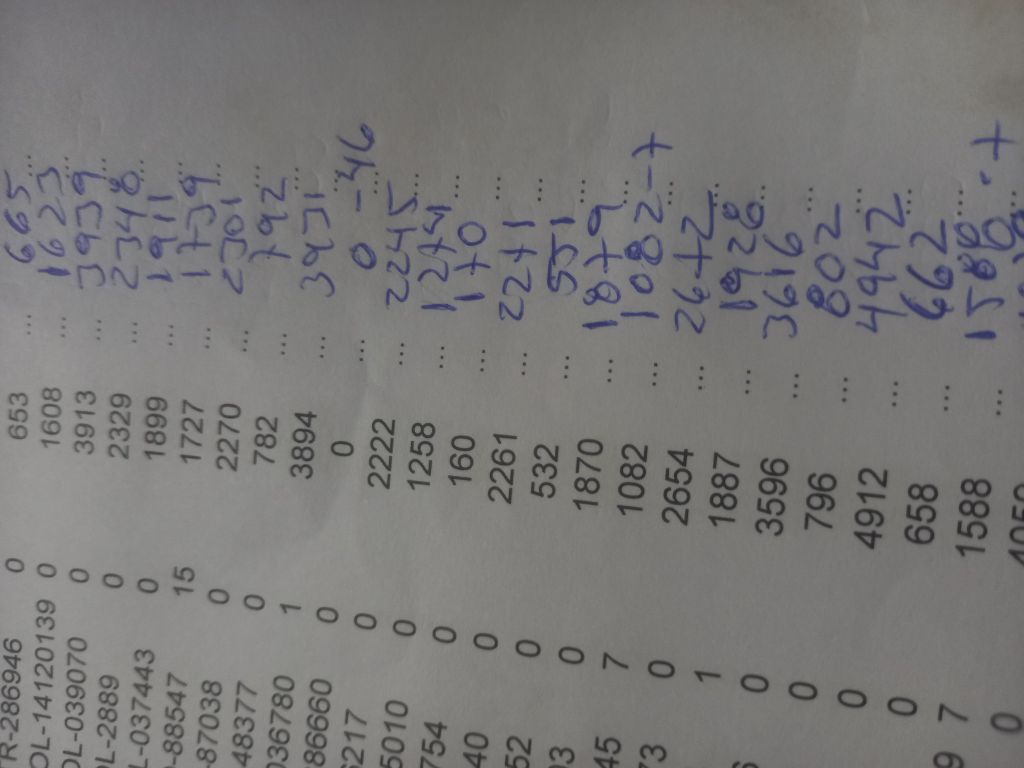 TR-286946 0 653 ... 665...
OL-14120139 0 1608 ... 1623...
OL-039070 0 3913 ... 3939...
OL-2889 0 2329 ... 2348...
L-037443 0 1899 ... 1911...
-88547 15 1727 ... 1739...
-87038 0 2270 ... 2301...
48377 0 782 ... 792...
036780 1 3894 ... 3931...
86660 0 0 ... 0 -346
6217 0 2222 ... 2245...
5010 0 1258 ... 1274...
754 0 160 ... 170...
40 0 2261 ... 2271...
52 0 532 ... 551...
3 0 1870 ... 1879...
45 7 1082 ... 1082 - +
73 0 2654 ... 2672...
1 1887 ... 1928...
0 3596 ... 3616
0 796 ... 802...
0 4912 ... 4942...
0 658 ... 662...
9 7 1588 ... 1588... +
0